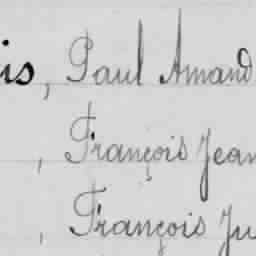 is, Paul Amand
, François Jean
, François Ju